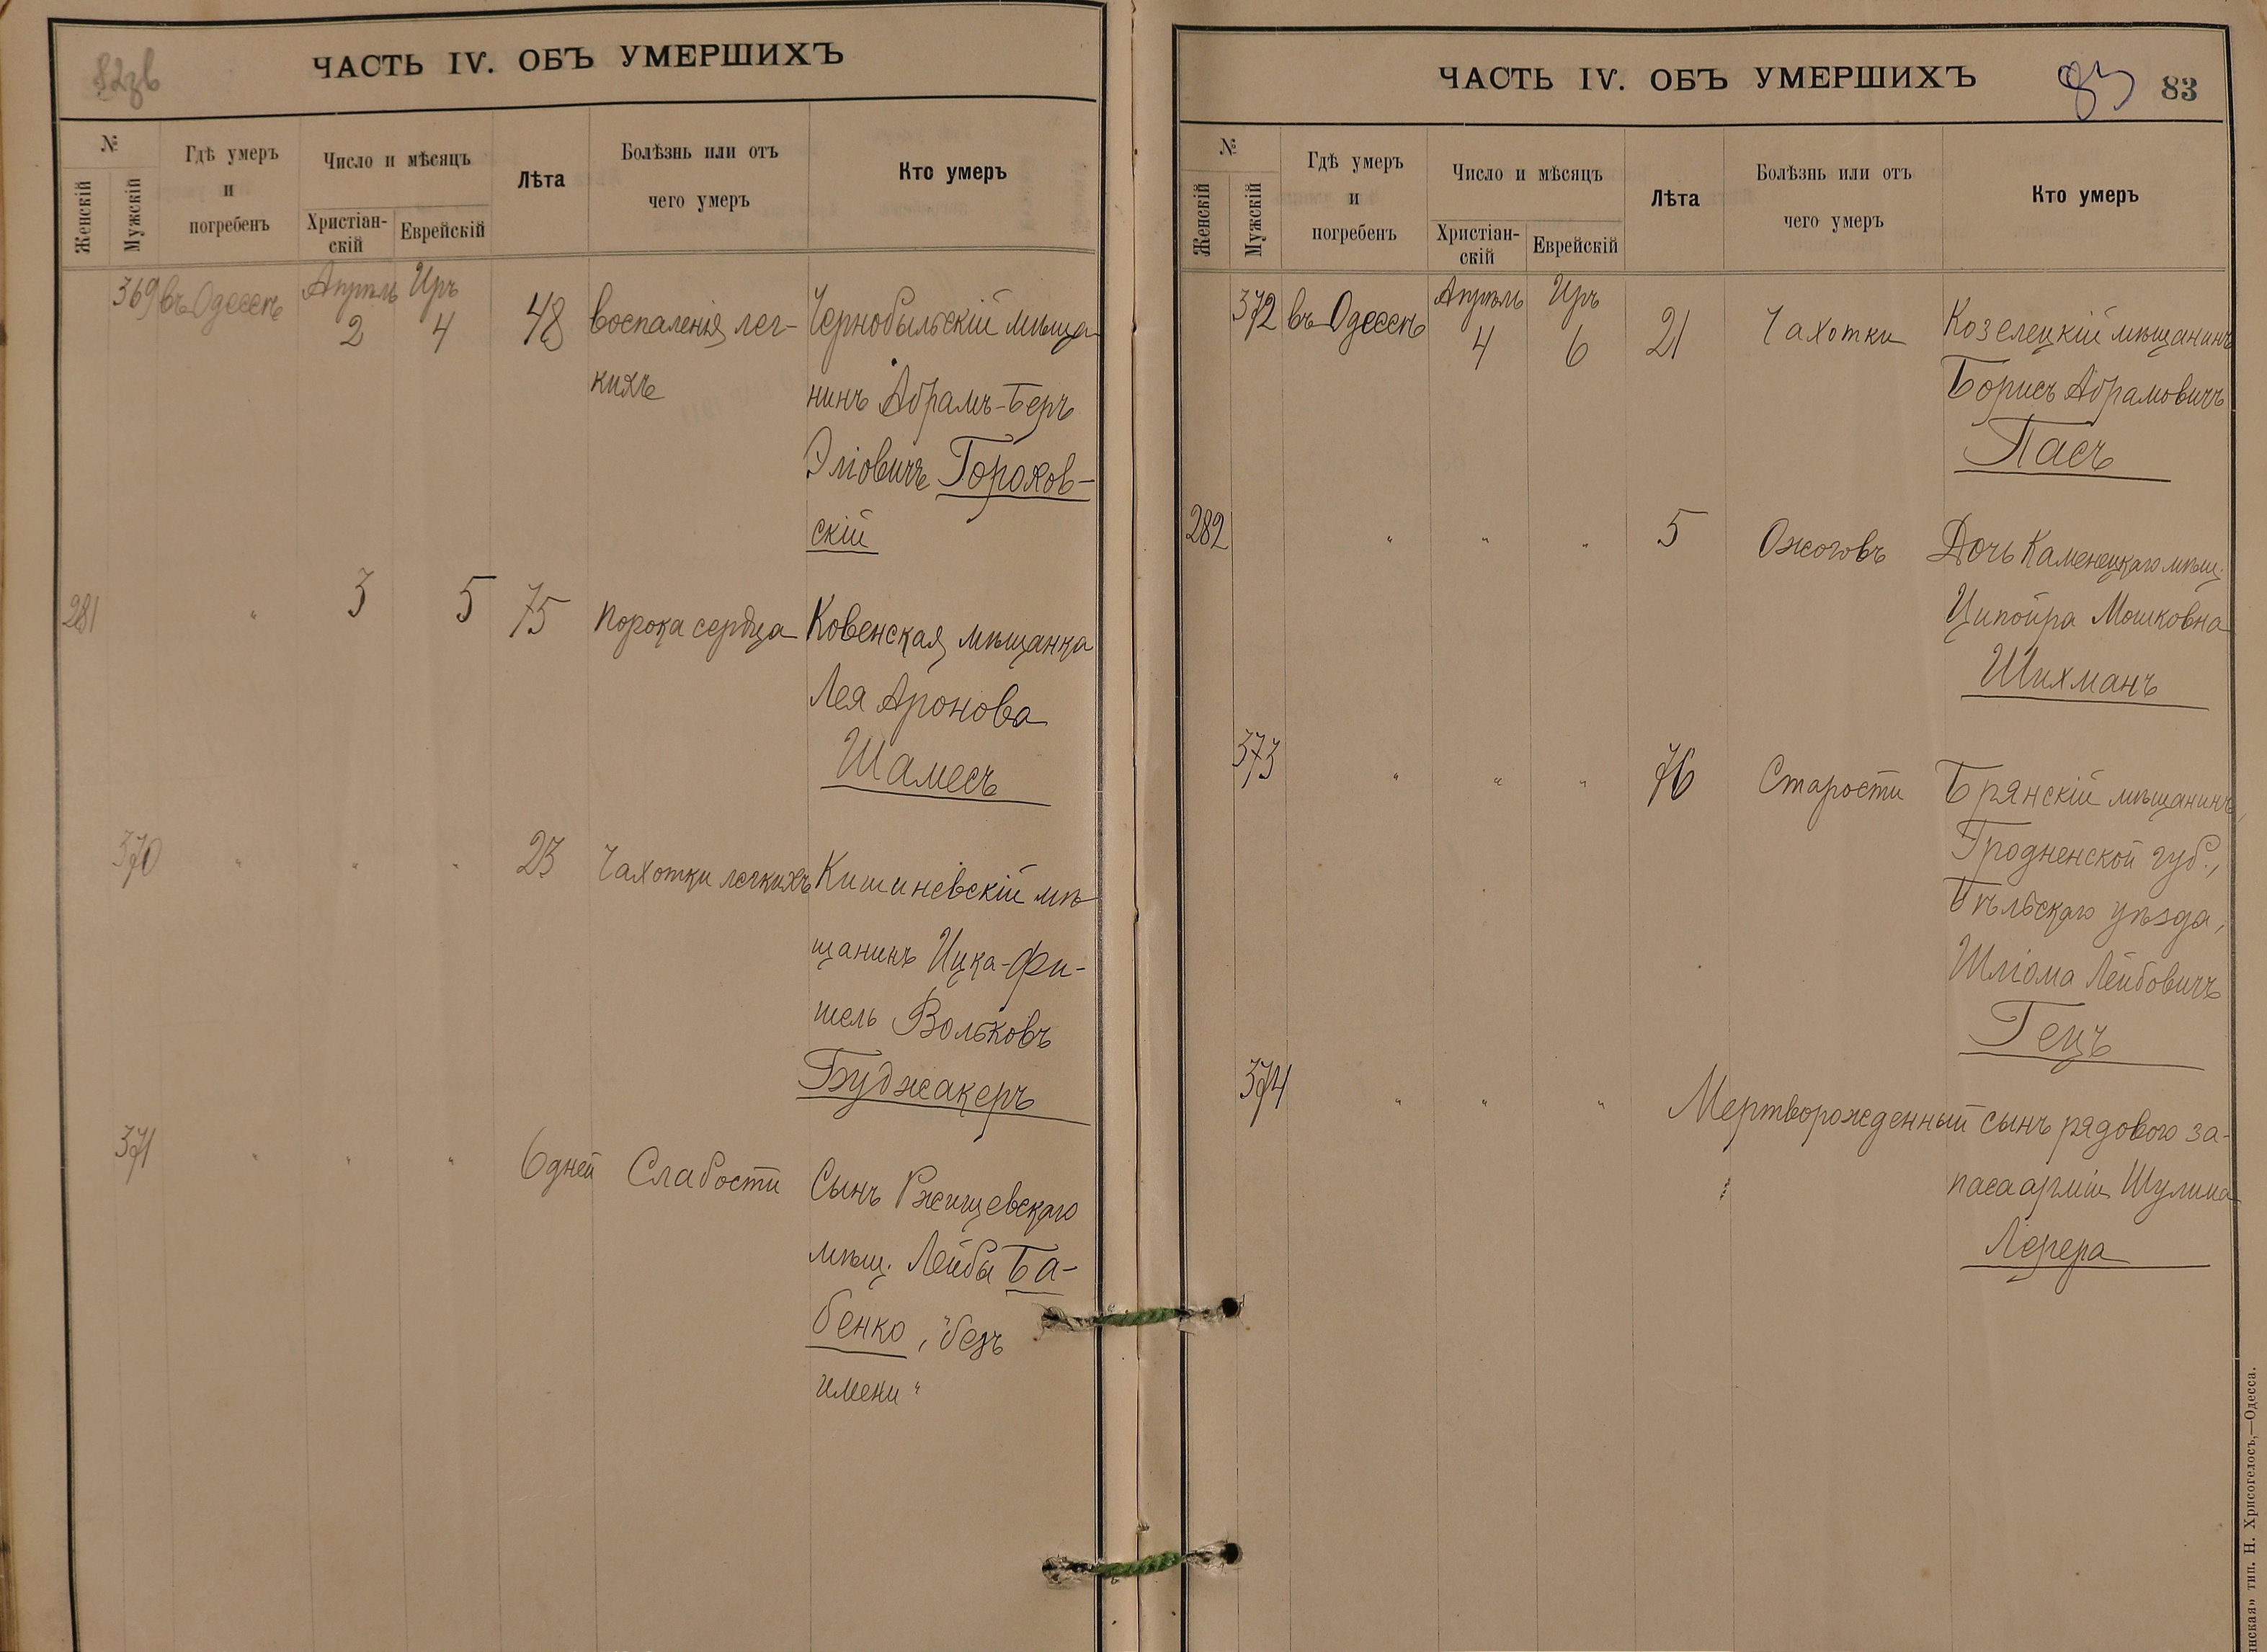 82зв
ЧАСТЬ IV. ОБЪ УМЕРШИХЪ
№
Женскій
Мужскій
Гдѣ умеръ
и
погребенъ
Число и мѣсяцъ
Христіан-
скій
Еврейскій
Лѣта
Болѣзнь или отъ
чего умеръ
Кто умеръ
369 въ Одессѣ Апрѣль 2 Иръ 4 48 воспаленія лег-
кихъ
Чернобыльскій мѣща
нинъ Абрамъ-Беръ
Эліовичъ Горохов-
скій
281 " 3 5 75 порока сердца Ковенская мѣщанка
Лея Аронова
Шамесъ
370 " " " 23 Чахотки легкихъ Кишиневскій мѣ
щанинъ Ицка-Фи-
шель Вольковъ
Буджакеръ
371 " " " 6 дней Слабости Сынъ Ржищевскаго
мѣщ. Лейбы Ба-
бенко, "безъ
имени"
ЧАСТЬ IV. ОБЪ УМЕРШИХЪ
83 83
№
Женскій
Мужскій
Гдѣ умеръ
и
погребенъ
Число и мѣсяцъ
Христіан-
скій
Еврейскій
Лѣта
Болѣзнь или отъ
чего умеръ
Кто умеръ
372 въ Одессѣ Апрѣль 4 Иръ 6 21 Чахотки Козелецкій мѣщанинъ
Борисъ Абрамовичъ
Пасъ
282 " " " 5 Ожоговъ Дочь Каменецкаго мѣщ.
Ципойра Мошковна
Шихманъ
373 " " " 76 Старости Брянскій мѣщанинъ,
Гродненской губ.,
Бѣльскаго уѣзда,
Шліома Лейбовичъ
Гецъ
374 " " " Мертворожденный сынъ рядового за-
паса арміи Шулима
Лерера
тип. Н. Хрисогелосъ,—Одесса.